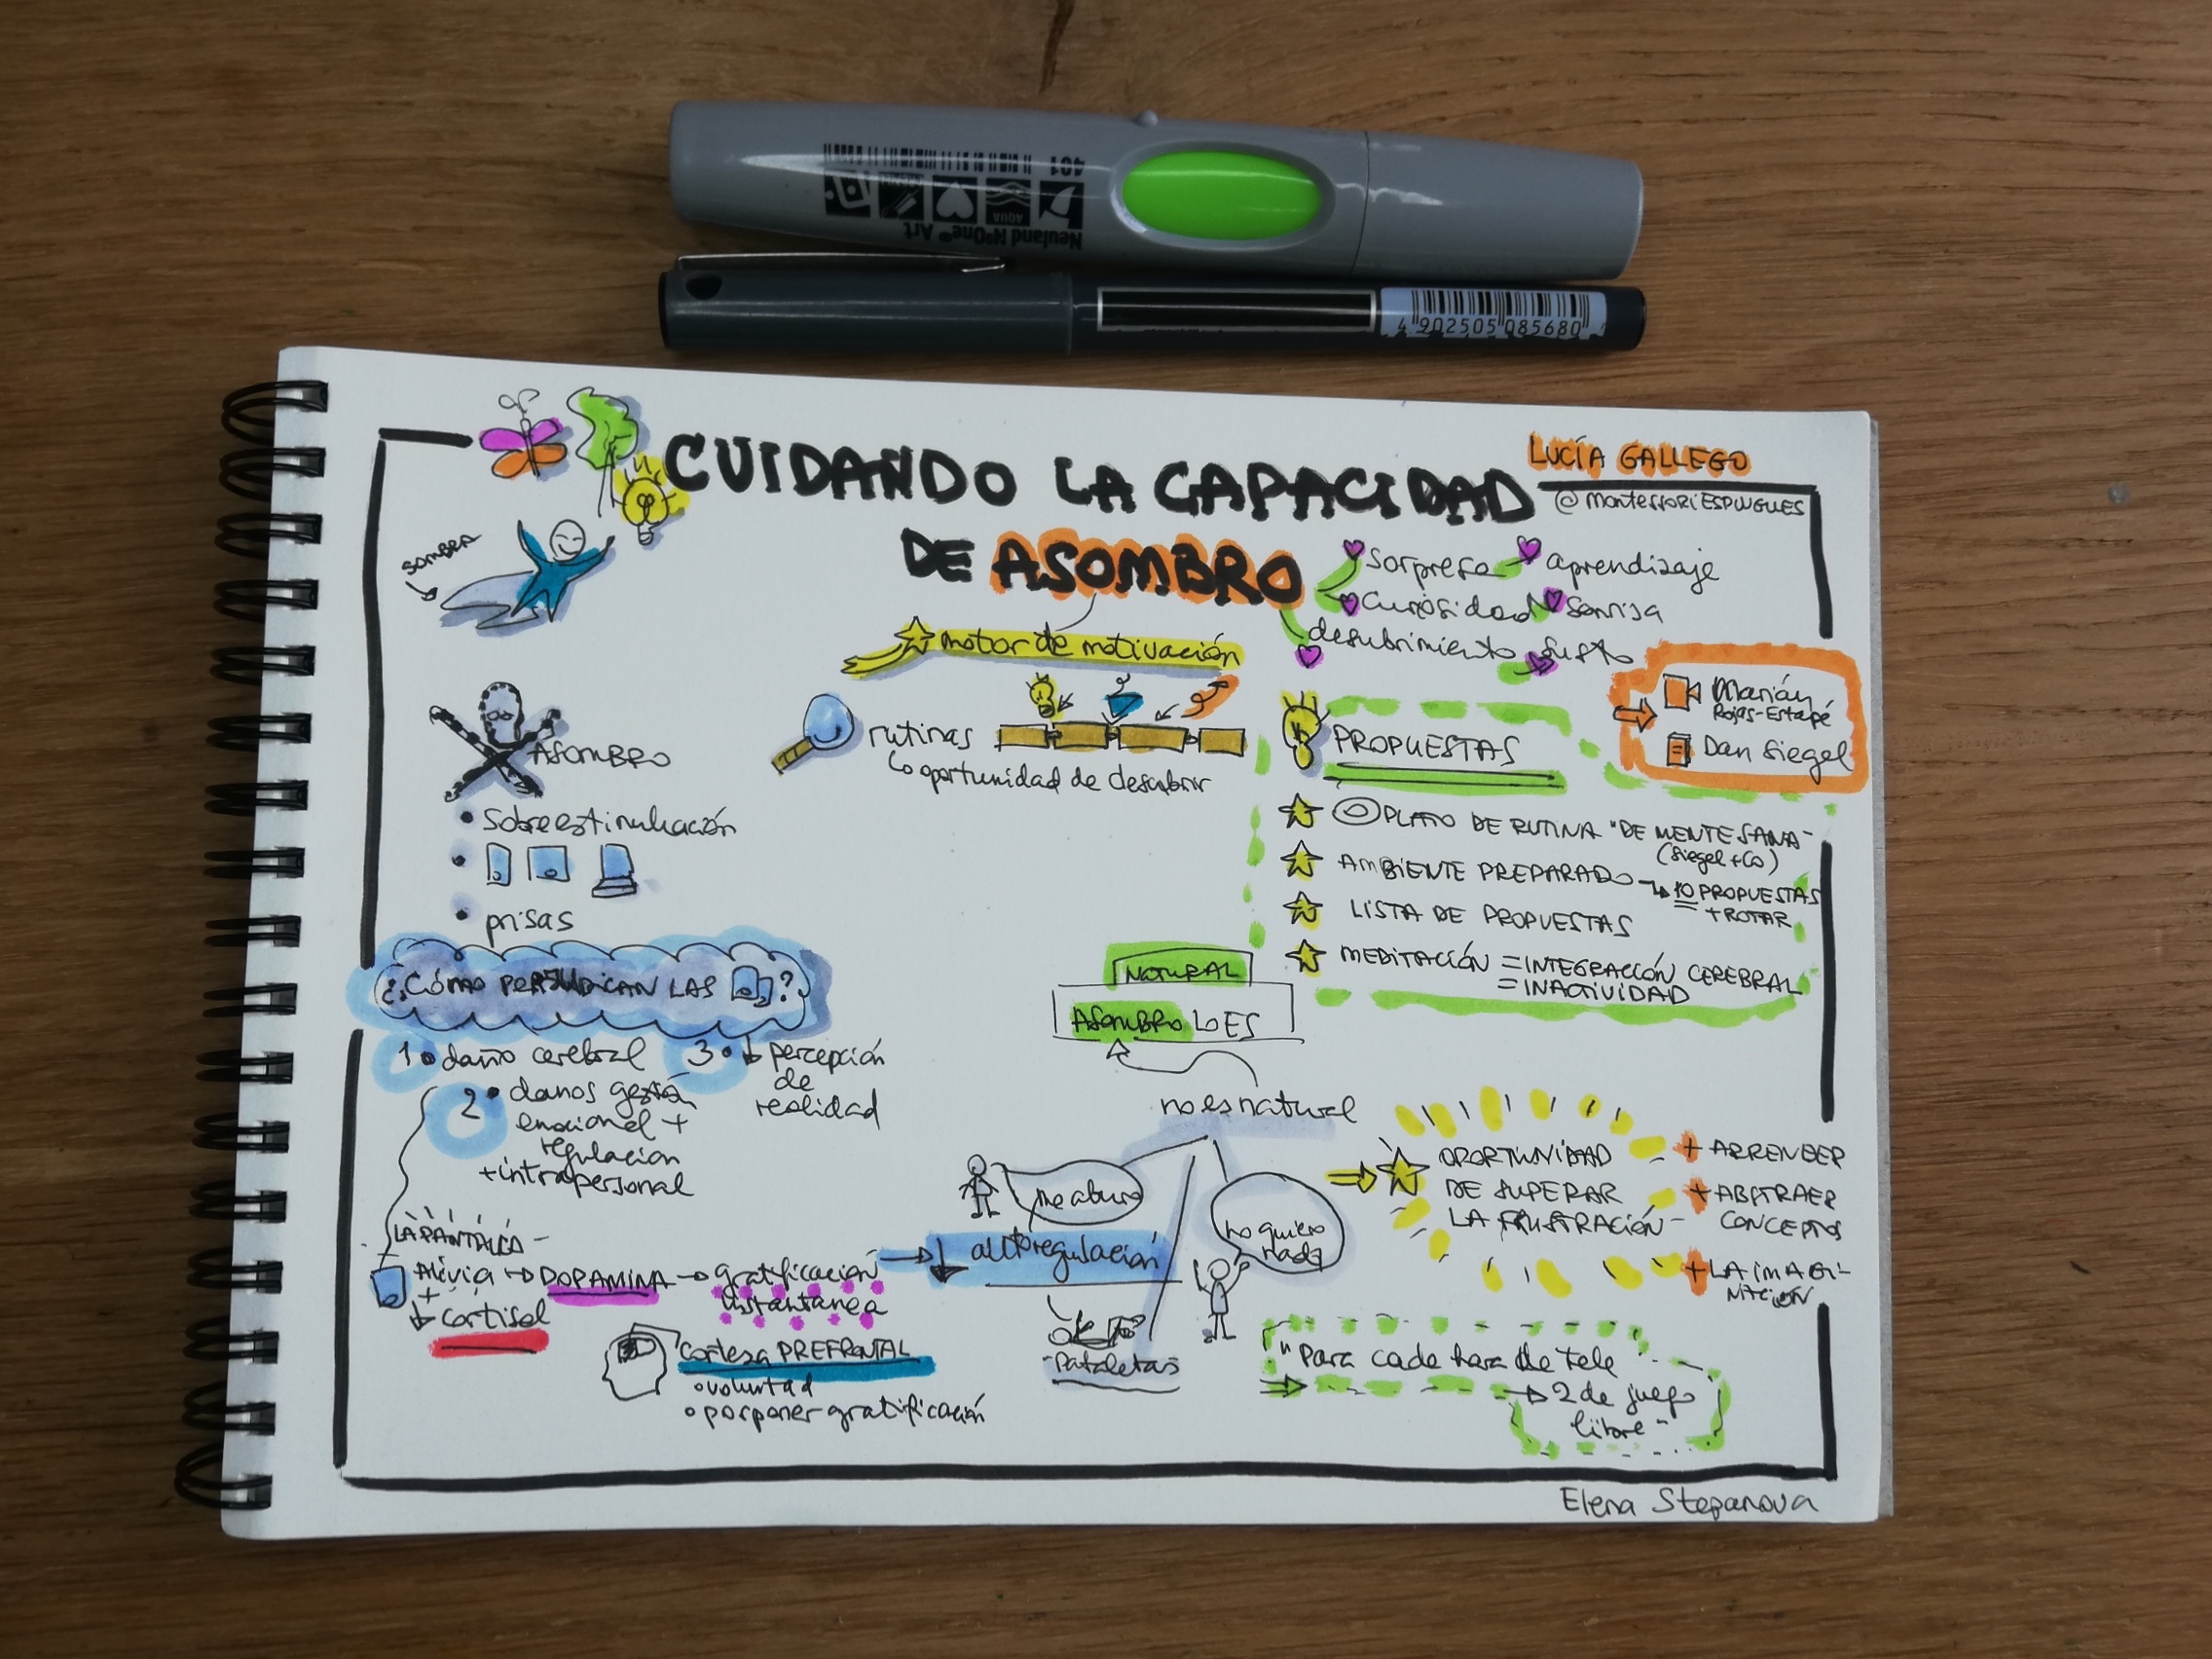 Neuland NºOne® Art
AQUA
401
4 902505 085680
CUIDANDO LA CAPACIDAD
DE ASOMBRO
LUCÍA GALLEGO
@MONTESSORIESPLUGUES
SOMBRA
sorpresa
aprendizaje
curiosidad
sonrisa
descubrimiento
susto
motor de motivación
rutinas
oportunidad de descubrir
Marián
Rojas-Estapé
Dan Siegel
ASOMBRO
• sobreestimulación
•
• prisas
PROPUESTAS
PLATO DE RUTINA "DE MENTE SANA"
(Siegel + Co)
AMBIENTE PREPARADO → 10 PROPUESTAS
+ ROTAR
LISTA DE PROPUESTAS
MEDITACIÓN = INTEGRACCIÓN CEREBRAL
= INACTIVIDAD
¿CÓMO PERJUDICAN LAS ?
1 • daño cerebral
2 • danos gestión
emocional +
regulacion
+ intrapersonal
3 • ↓ percepción
de
realidad
NATURAL
ASOMBRO LO ES
no es natural
me aburo
no quiero
nada
LA PANTALLA
Alivia → DOPAMINA → gratificación
instantanea
+
↓ cortisol
→ ↓ autoregulación
-Pataletas
corteza PREFRONTAL
• voluntad
• posponer gratificación
⇒ OPORTUNIDAD
DE SUPERAR
LA FRUSTRACIÓN -
+ APRENDER
+ ABSTRAER
CONCEPTOS
+ LA IMAGI-
NACIÓN
"Para cada hora de tele
→ 2 de juego
libre"
Elena Stepanova